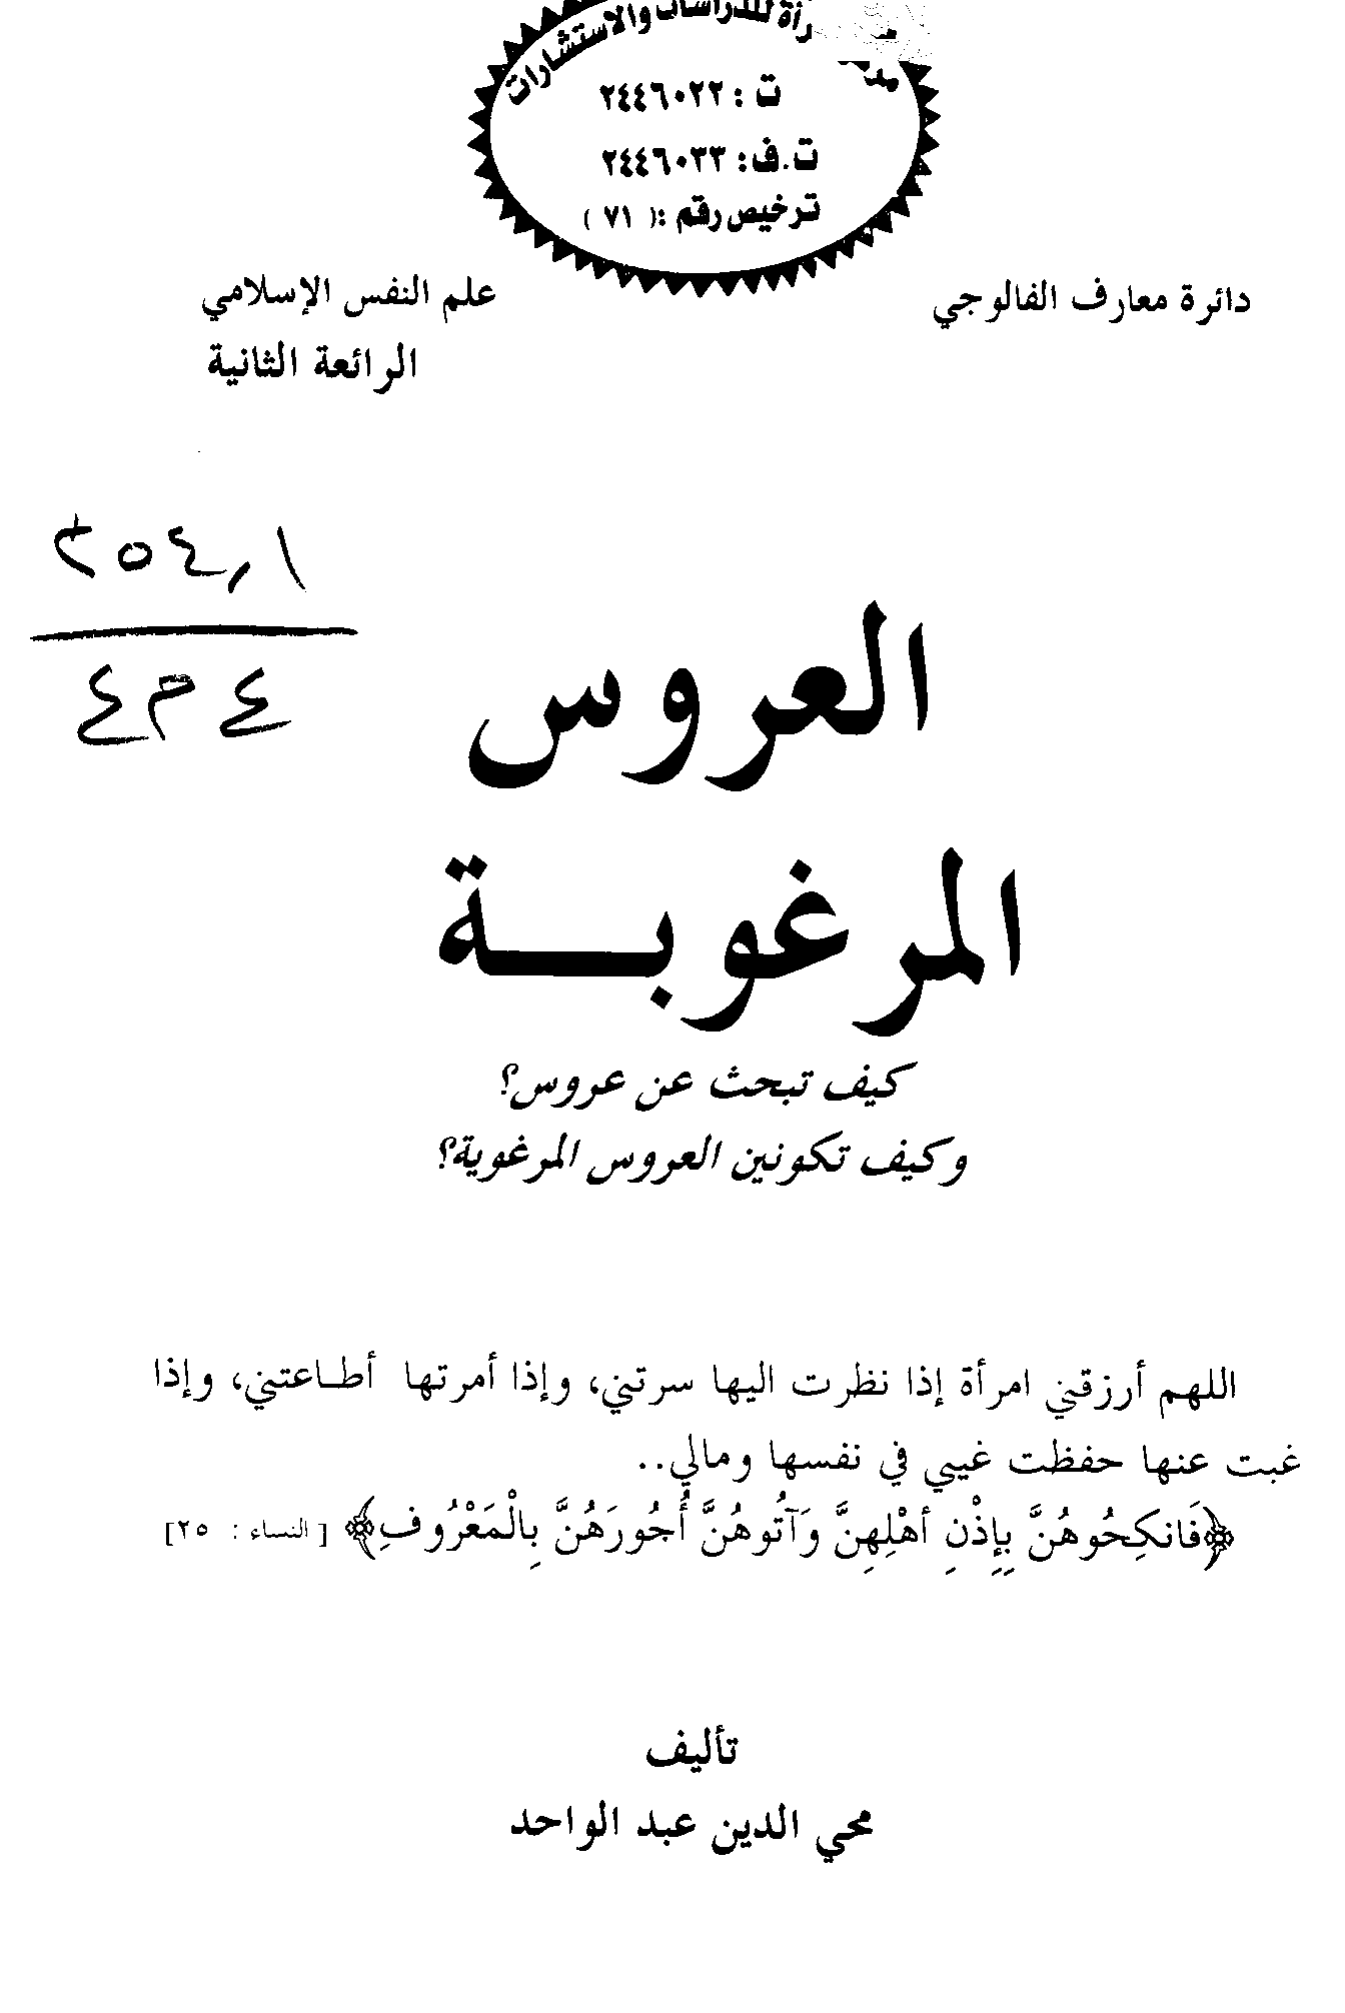 للدراسات والاستشارات
ت : ٢٤٤٦٠٢٢
ت.ف: ٢٤٤٦٠٣٣
ترخيص رقم :( ٧١ )
دائرة معارف الفالوجي
علم النفس الإسلامي
الرائعة الثانية
٢٥٤,١
٤٢٤
العروس
المرغوبة
كيف تبحث عن عروس؟
وكيف تكونين العروس المرغوية؟
اللهم أرزقني امرأة إذا نظرت اليها سرتني، وإذا أمرتها أطاعتني، وإذا
غبت عنها حفظت غيبي في نفسها ومالي..
﴿فَانكِحُوهُنَّ بِإِذْنِ أهْلِهِنَّ وَآتُوهُنَّ أُجُورَهُنَّ بِالْمَعْرُوفِ﴾ [النساء : ٢٥]
تأليف
محي الدين عبد الواحد